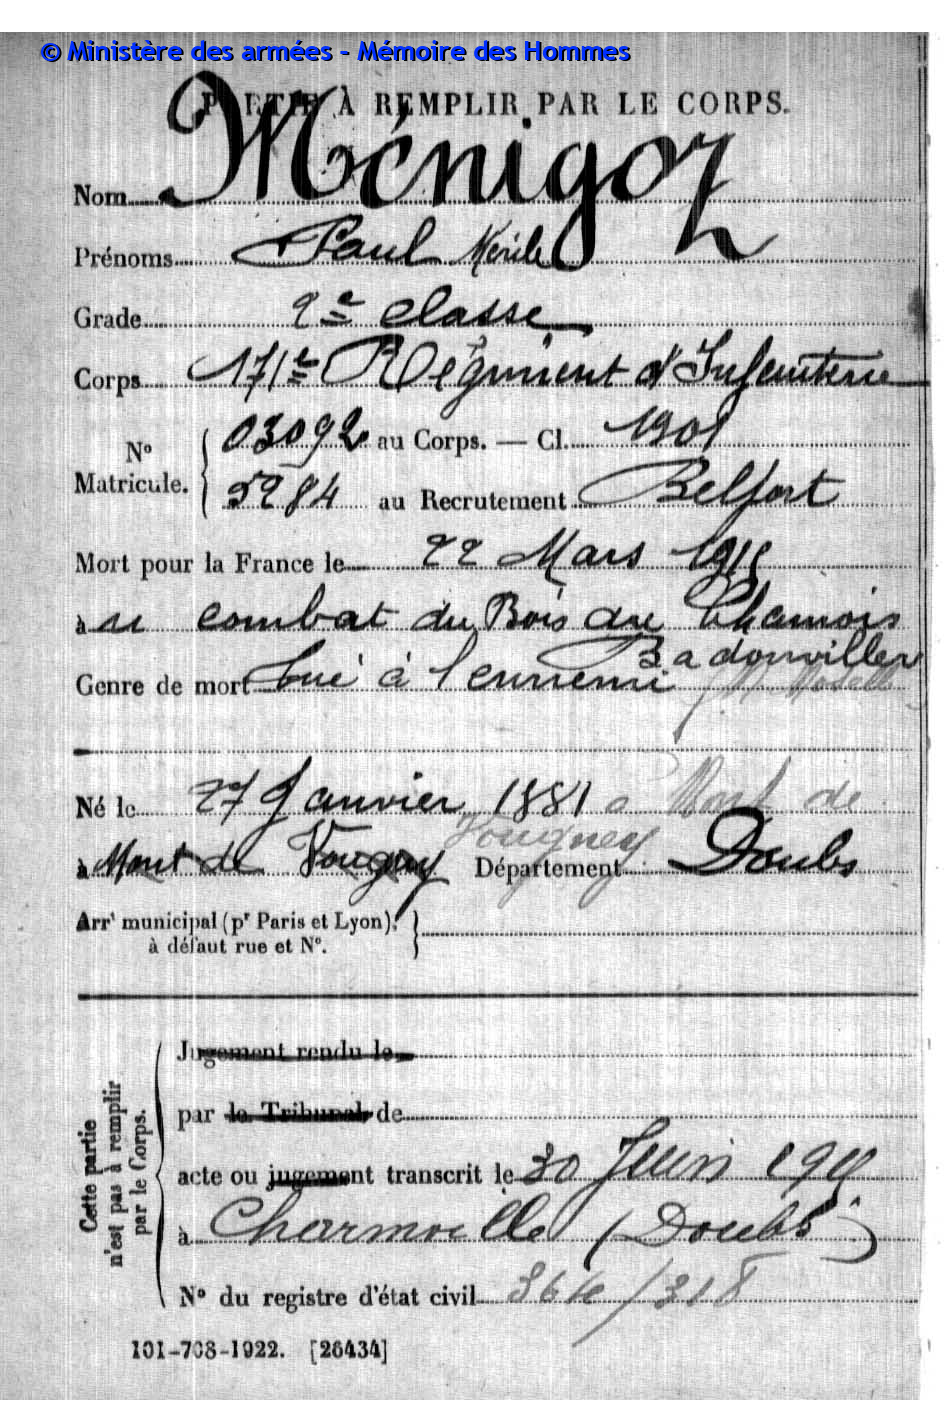 © Ministère des armées - Mémoire des Hommes
PARTIE À REMPLIR PAR LE CORPS.
Nom Ménigoz
Prénoms Paul
Grade 2e classe
Corps 171e Régiment d'Infanterie
No Matricule. 03092 au Corps. — Cl. 1901
5984 au Recrutement Belfort
Mort pour la France le 22 Mars 1915
à au combat du Bois du Chamois
Badonviller
Genre de mort tué à l'ennemi
Né le 27 Janvier 1881 à Mont de
Vougney
à Mont de Vougney Département Doubs
Arrt municipal (pr Paris et Lyon),
à défaut rue et No.
Cette partie
n'est pas à remplir
par le Corps.
Jugement rendu le
par le Tribunal de
acte ou jugement transcrit le 30 Juin
à Charmoille (Doubs)
No du registre d'état civil
101-708-1922. [26434]